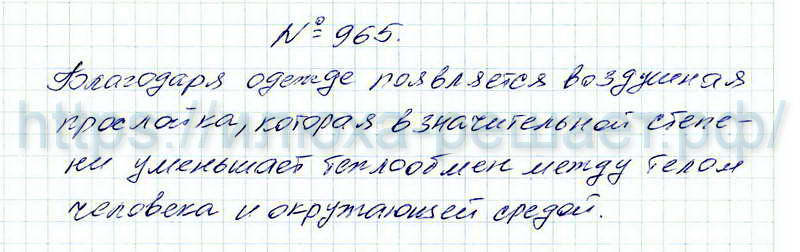 № 965.
Благодаря одежде появляется воздушная
прослойка, которая в значительной степе-
ни уменьшает теплообмен между телом
человека и окружающей средой.